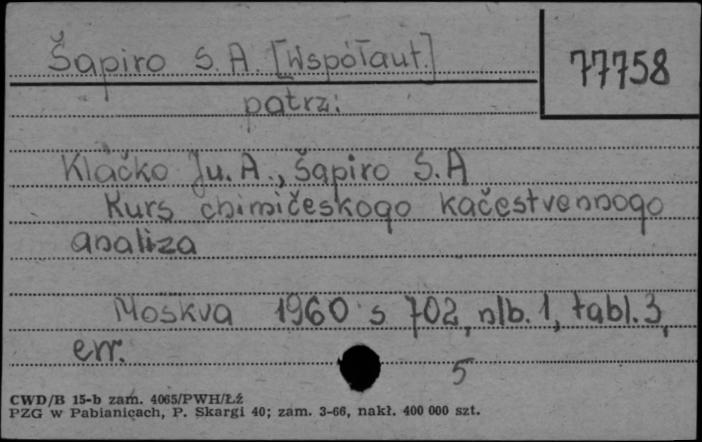 Šapiro S. A. [Współaut.]
77758
patrz:
Klačko Ju. A., Šapiro S. A
Kurs chimičeskogo kačestvennogo
analiza
Moskva 1960 s 702, nlb. 1, tabl. 3,
err.
5
CWD/B 15-b zam. 4065/PWH/Łź
PZG w Pabianicach, P. Skargi 40; zam. 3-66, nakł. 400 000 szt.